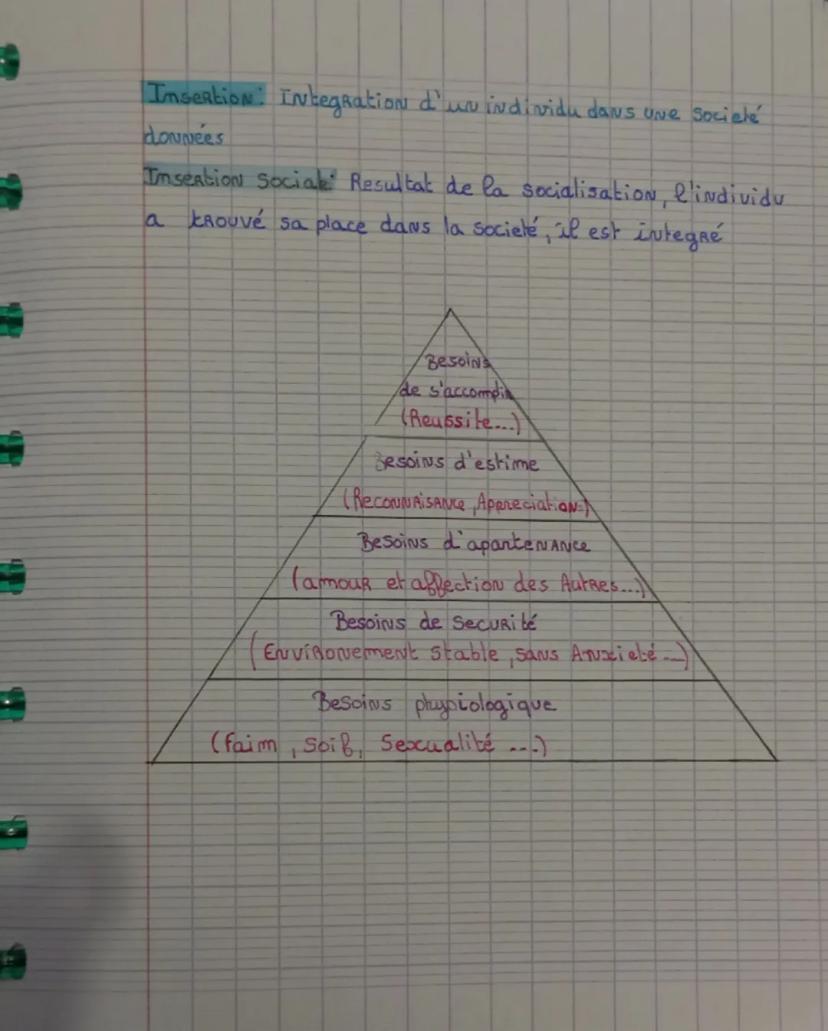 Insertion: Integration d'un individu dans une societé
données
Insertion social: Resultat de la socialisation, l'individu
a trouvé sa place dans la societé, il est integré
Besoins
de s'accomplir
(Reussite...)
Besoins d'estime
(Reconnaisance, Appreciation..)
Besoins d'apartenance
(amour et affection des Autres...)
Besoins de Securité
(Environement stable, sans Anxieté...)
Besoins physiologique
(faim, soif, Sexualité ...)